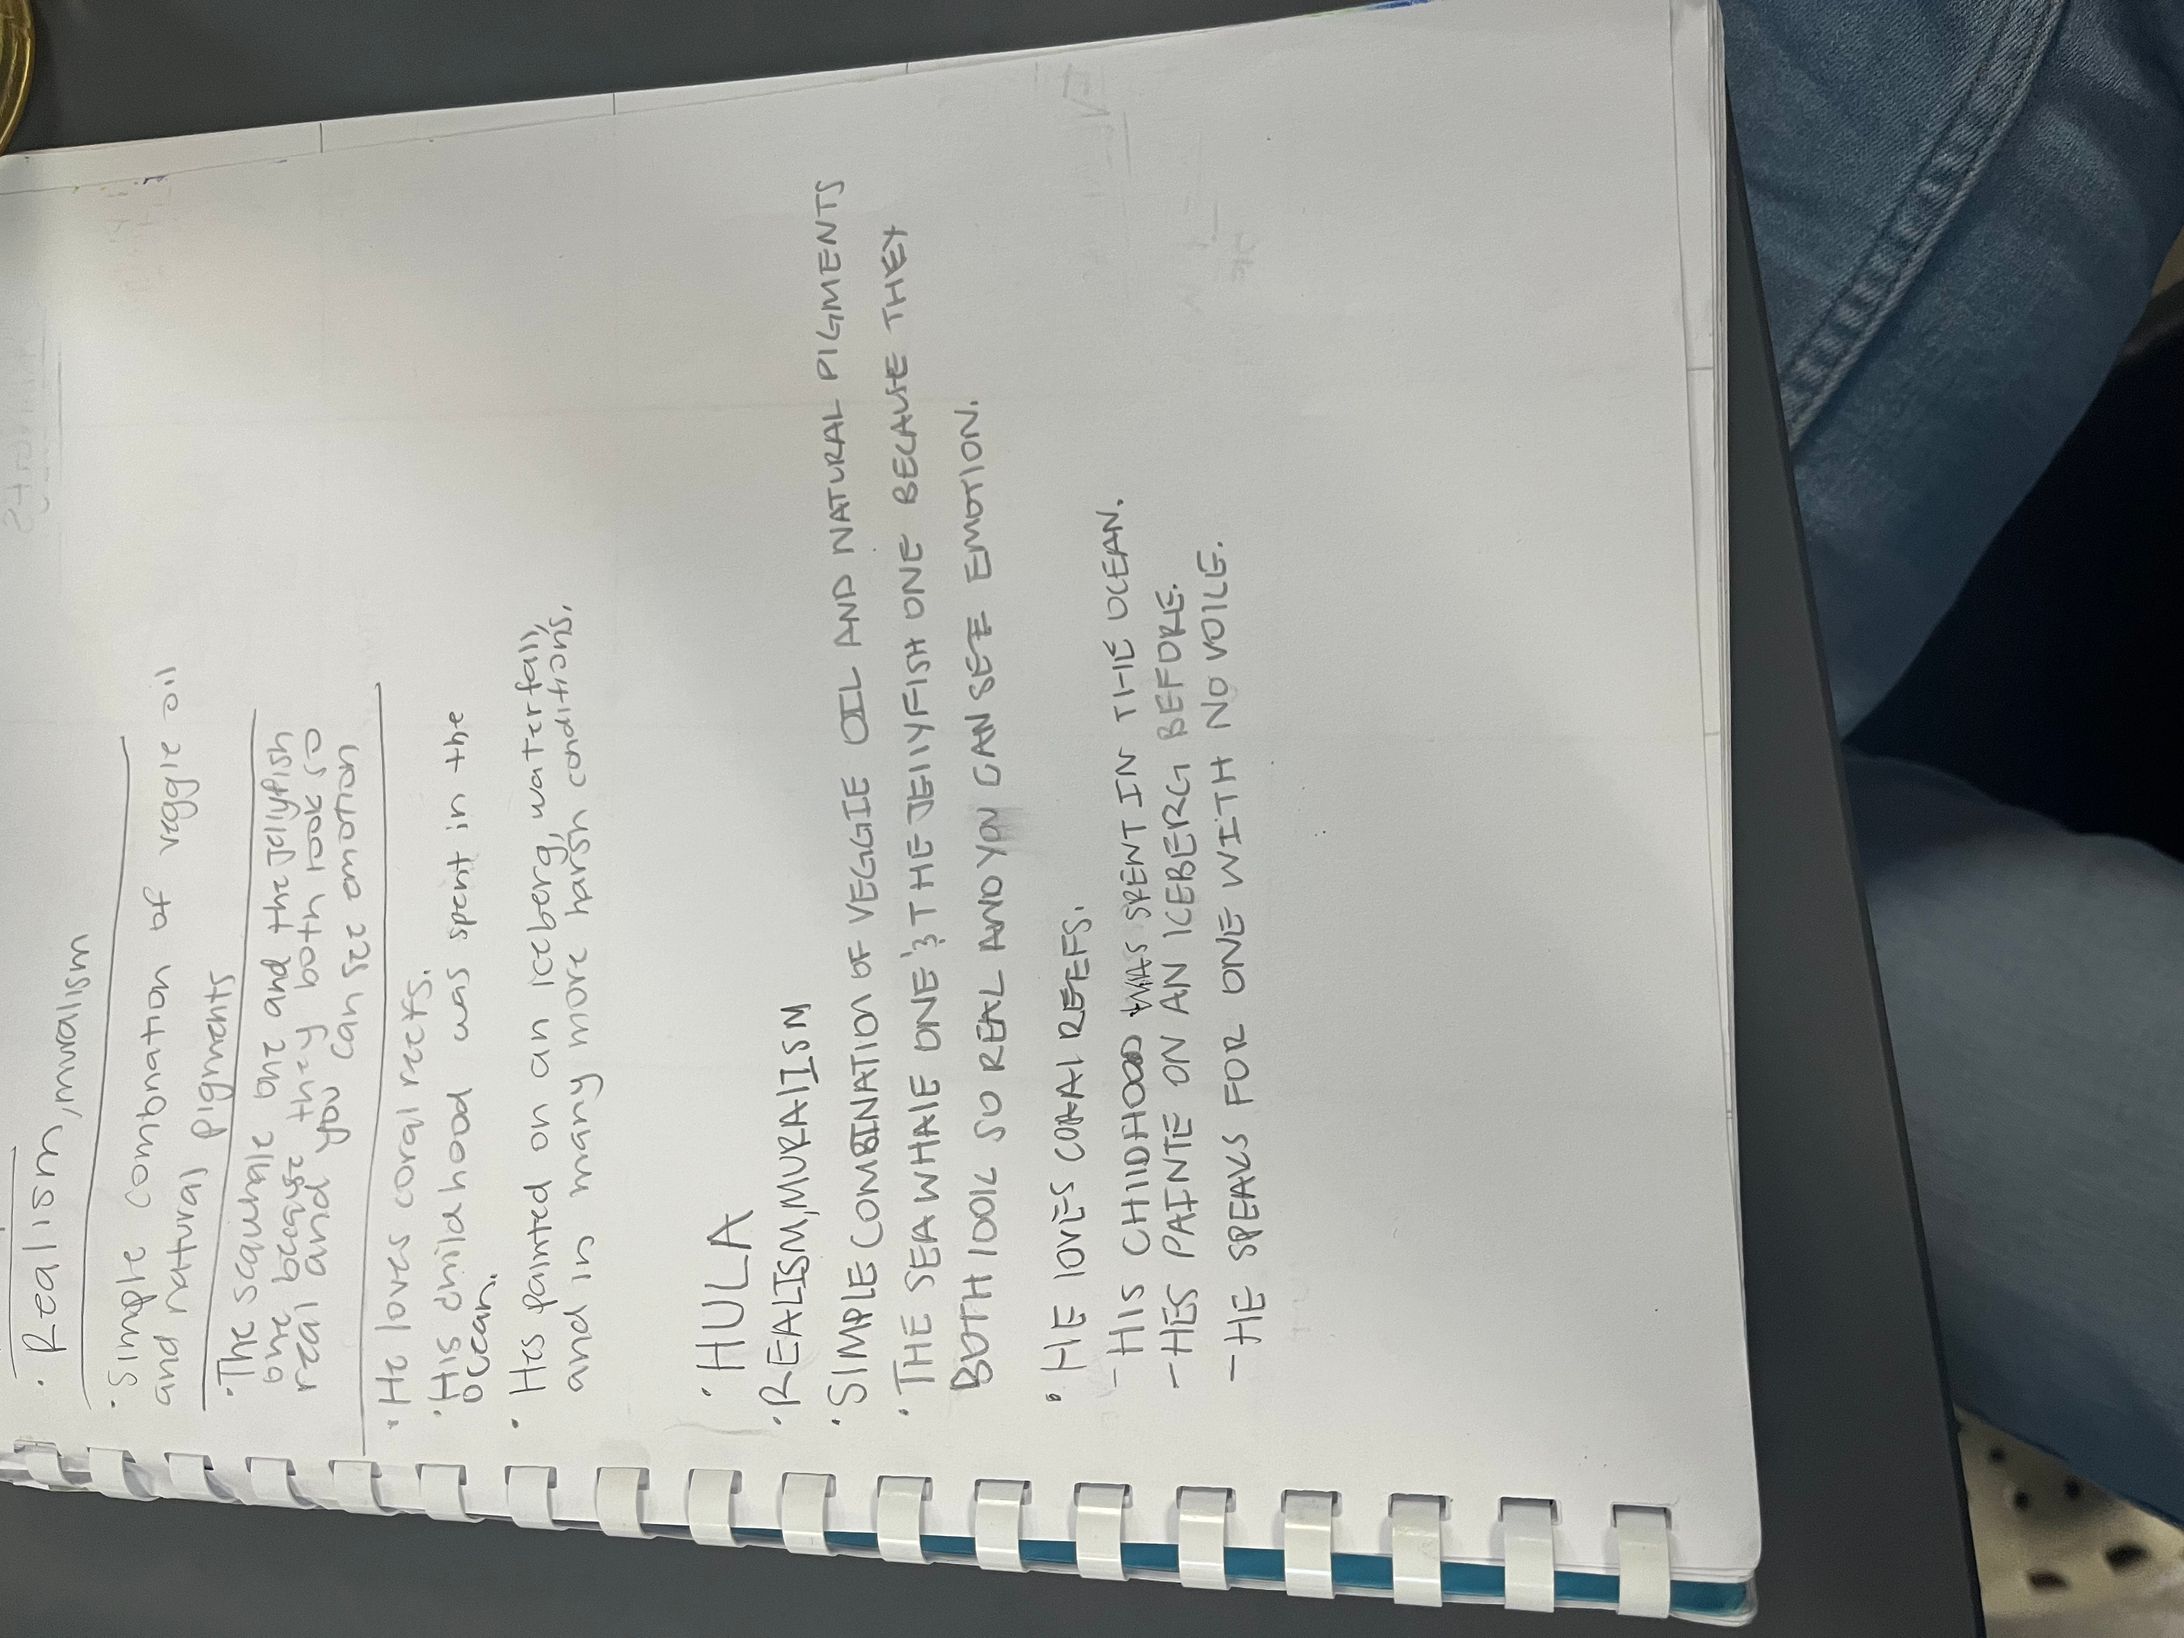 · Realism, muralism
· Simple combonation of veggie oil
and natural pigments
· The seawhale one and the Jellyfish
one because they both look so
real and you can see emotion
· He loves coral reefs.
· His childahood was spent in the
ocean.
· Hes painted on an iceberg, waterfall,
and in many more harsh conditions.
· HULA
· REALISM, MURALISM
· SIMPLE COMBINATION OF VEGGIE OIL AND NATURAL PIGMENTS
· THE SEA WHALE ONE & THE JELLYFISH ONE BECAUSE THEY
BOTH LOOK SO REAL AND YOU CAN SEE EMOTION.
· HE LOVES CORAL REEFS.
- HIS CHILDHOOD WAS SPENT IN THE OCEAN.
- HES PAINTE ON AN ICEBERG BEFORE.
- HE SPEAKS FOR ONE WITH NO VOICE.